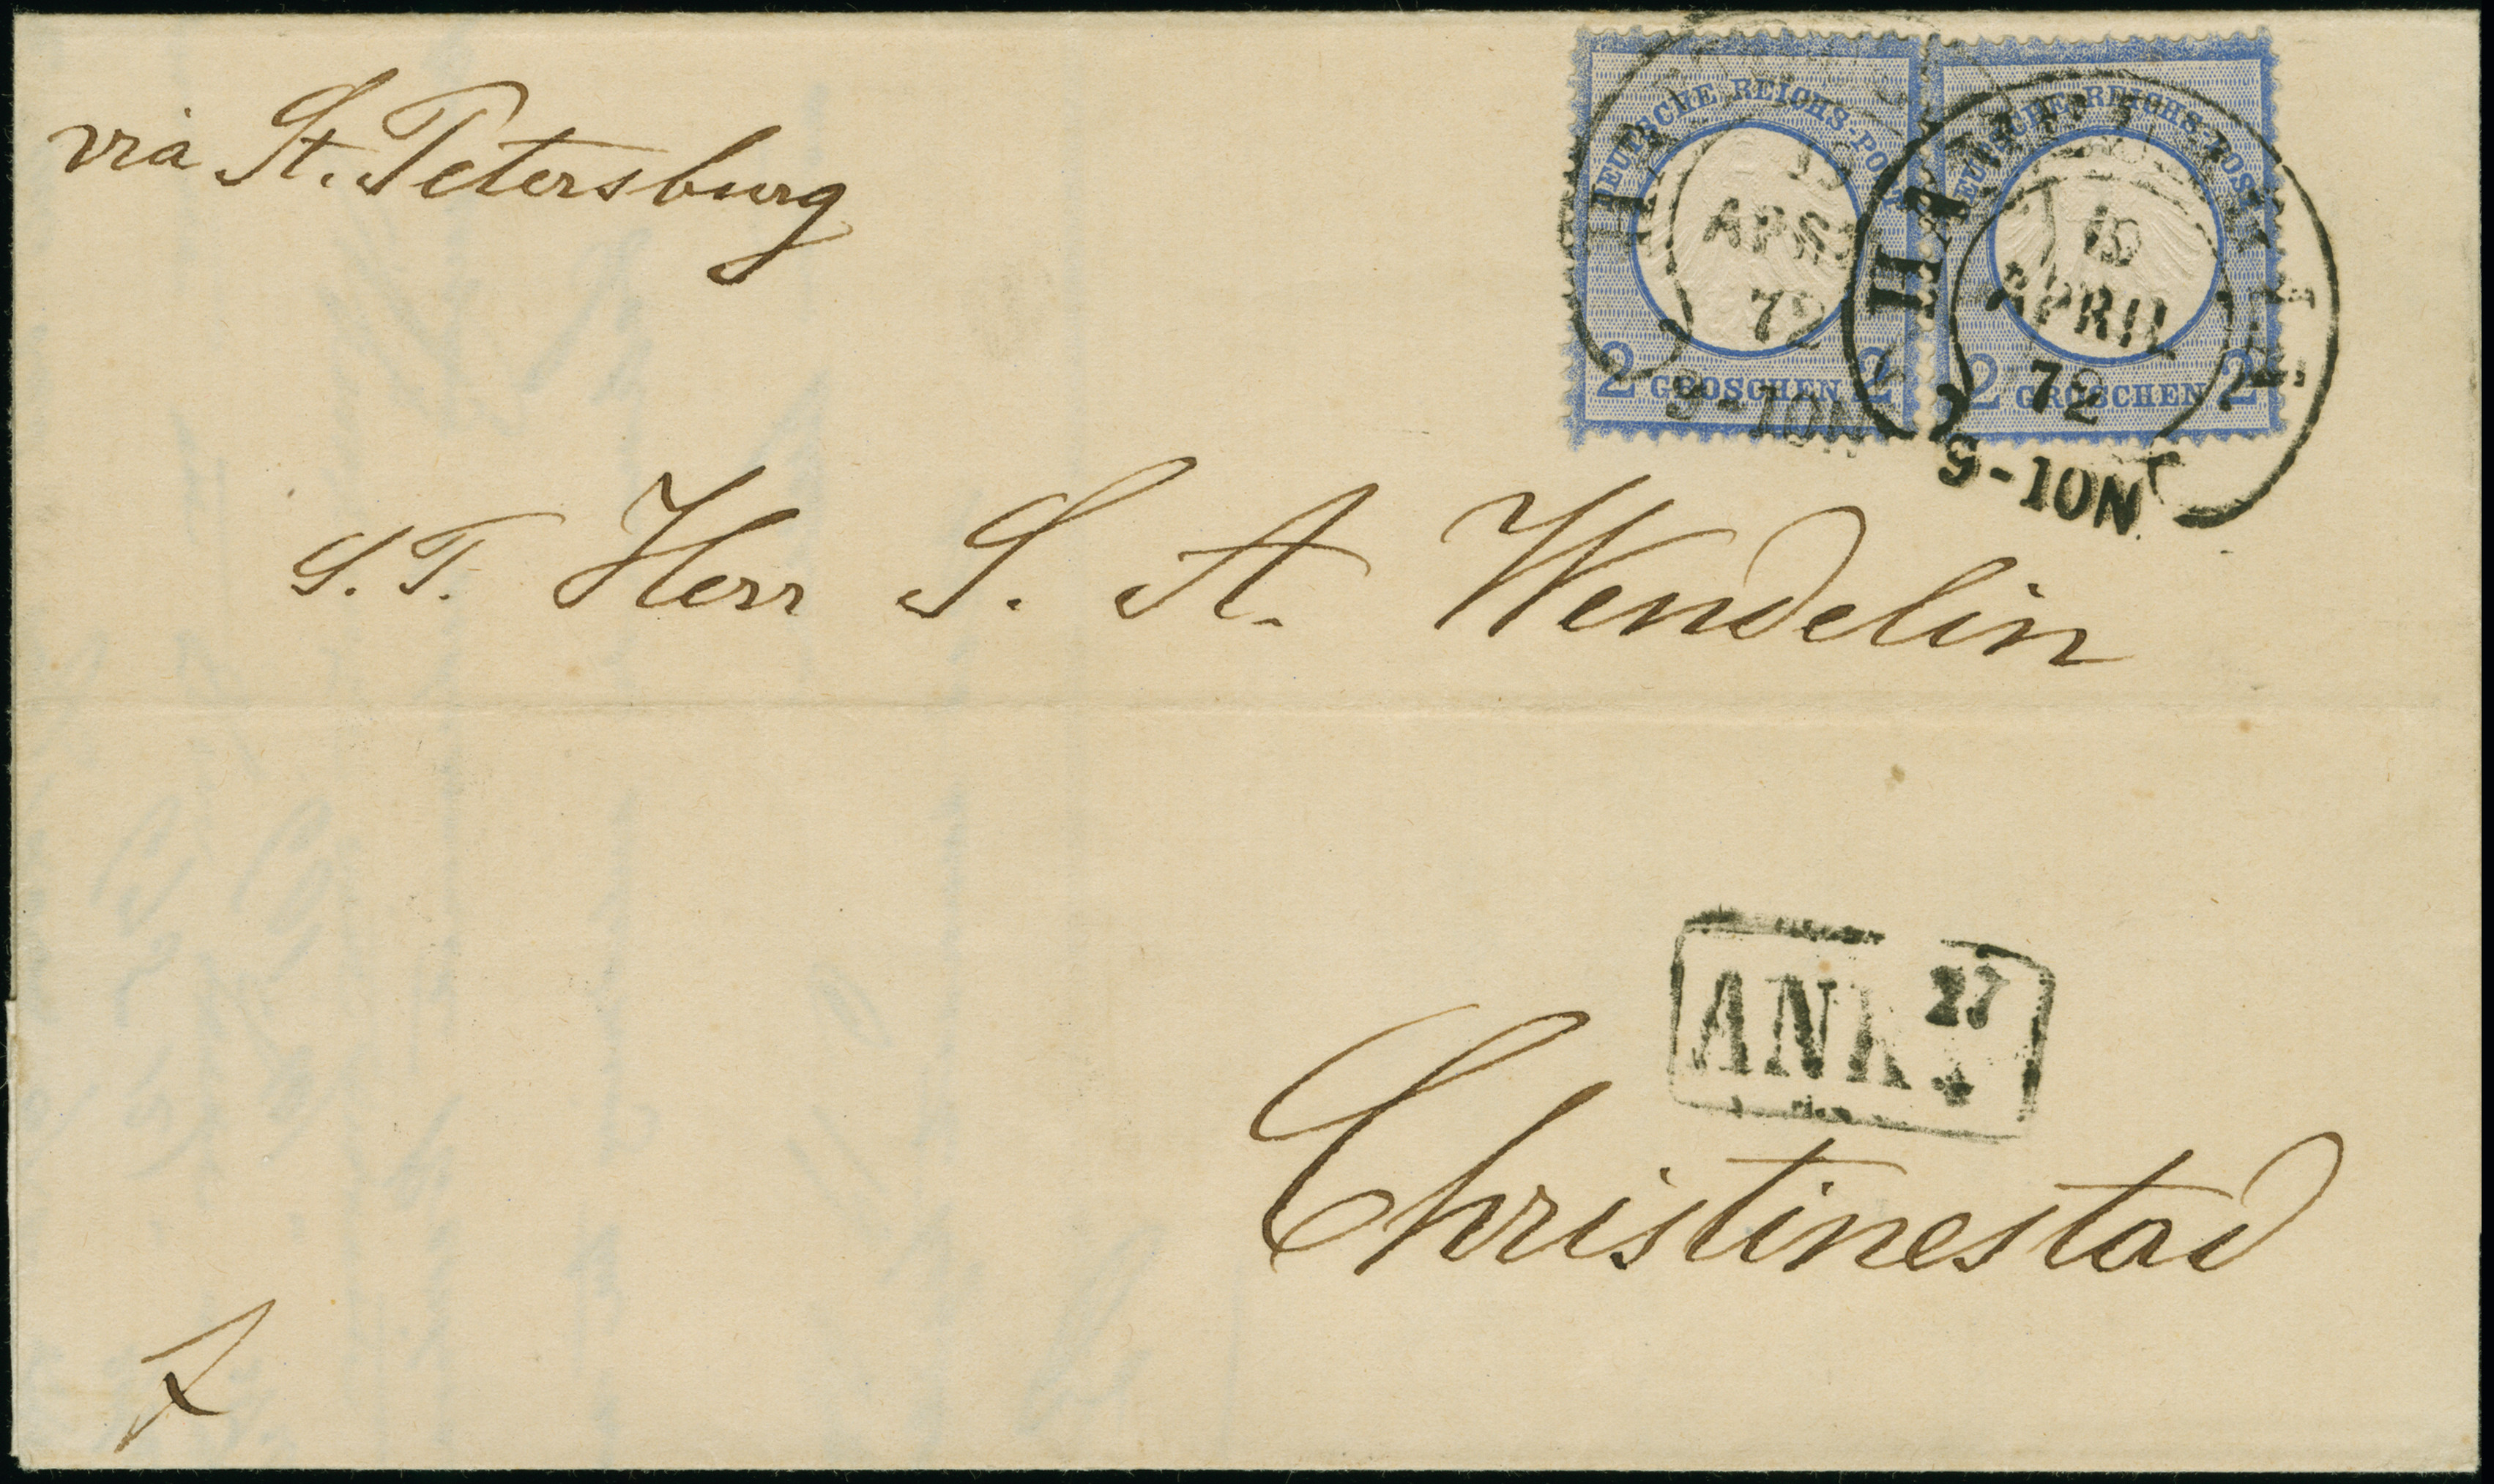 via St. Petersburg
DEUTSCHE REICHS-POST
2 GROSCHEN 2
APRIL
72
9-10N
DEUTSCHE REICHS-POST
2 GROSCHEN 2
19
APRIL
72
9-10N
S. T. Herr S. A. Wendelin
ANK 27
4
Christinestad